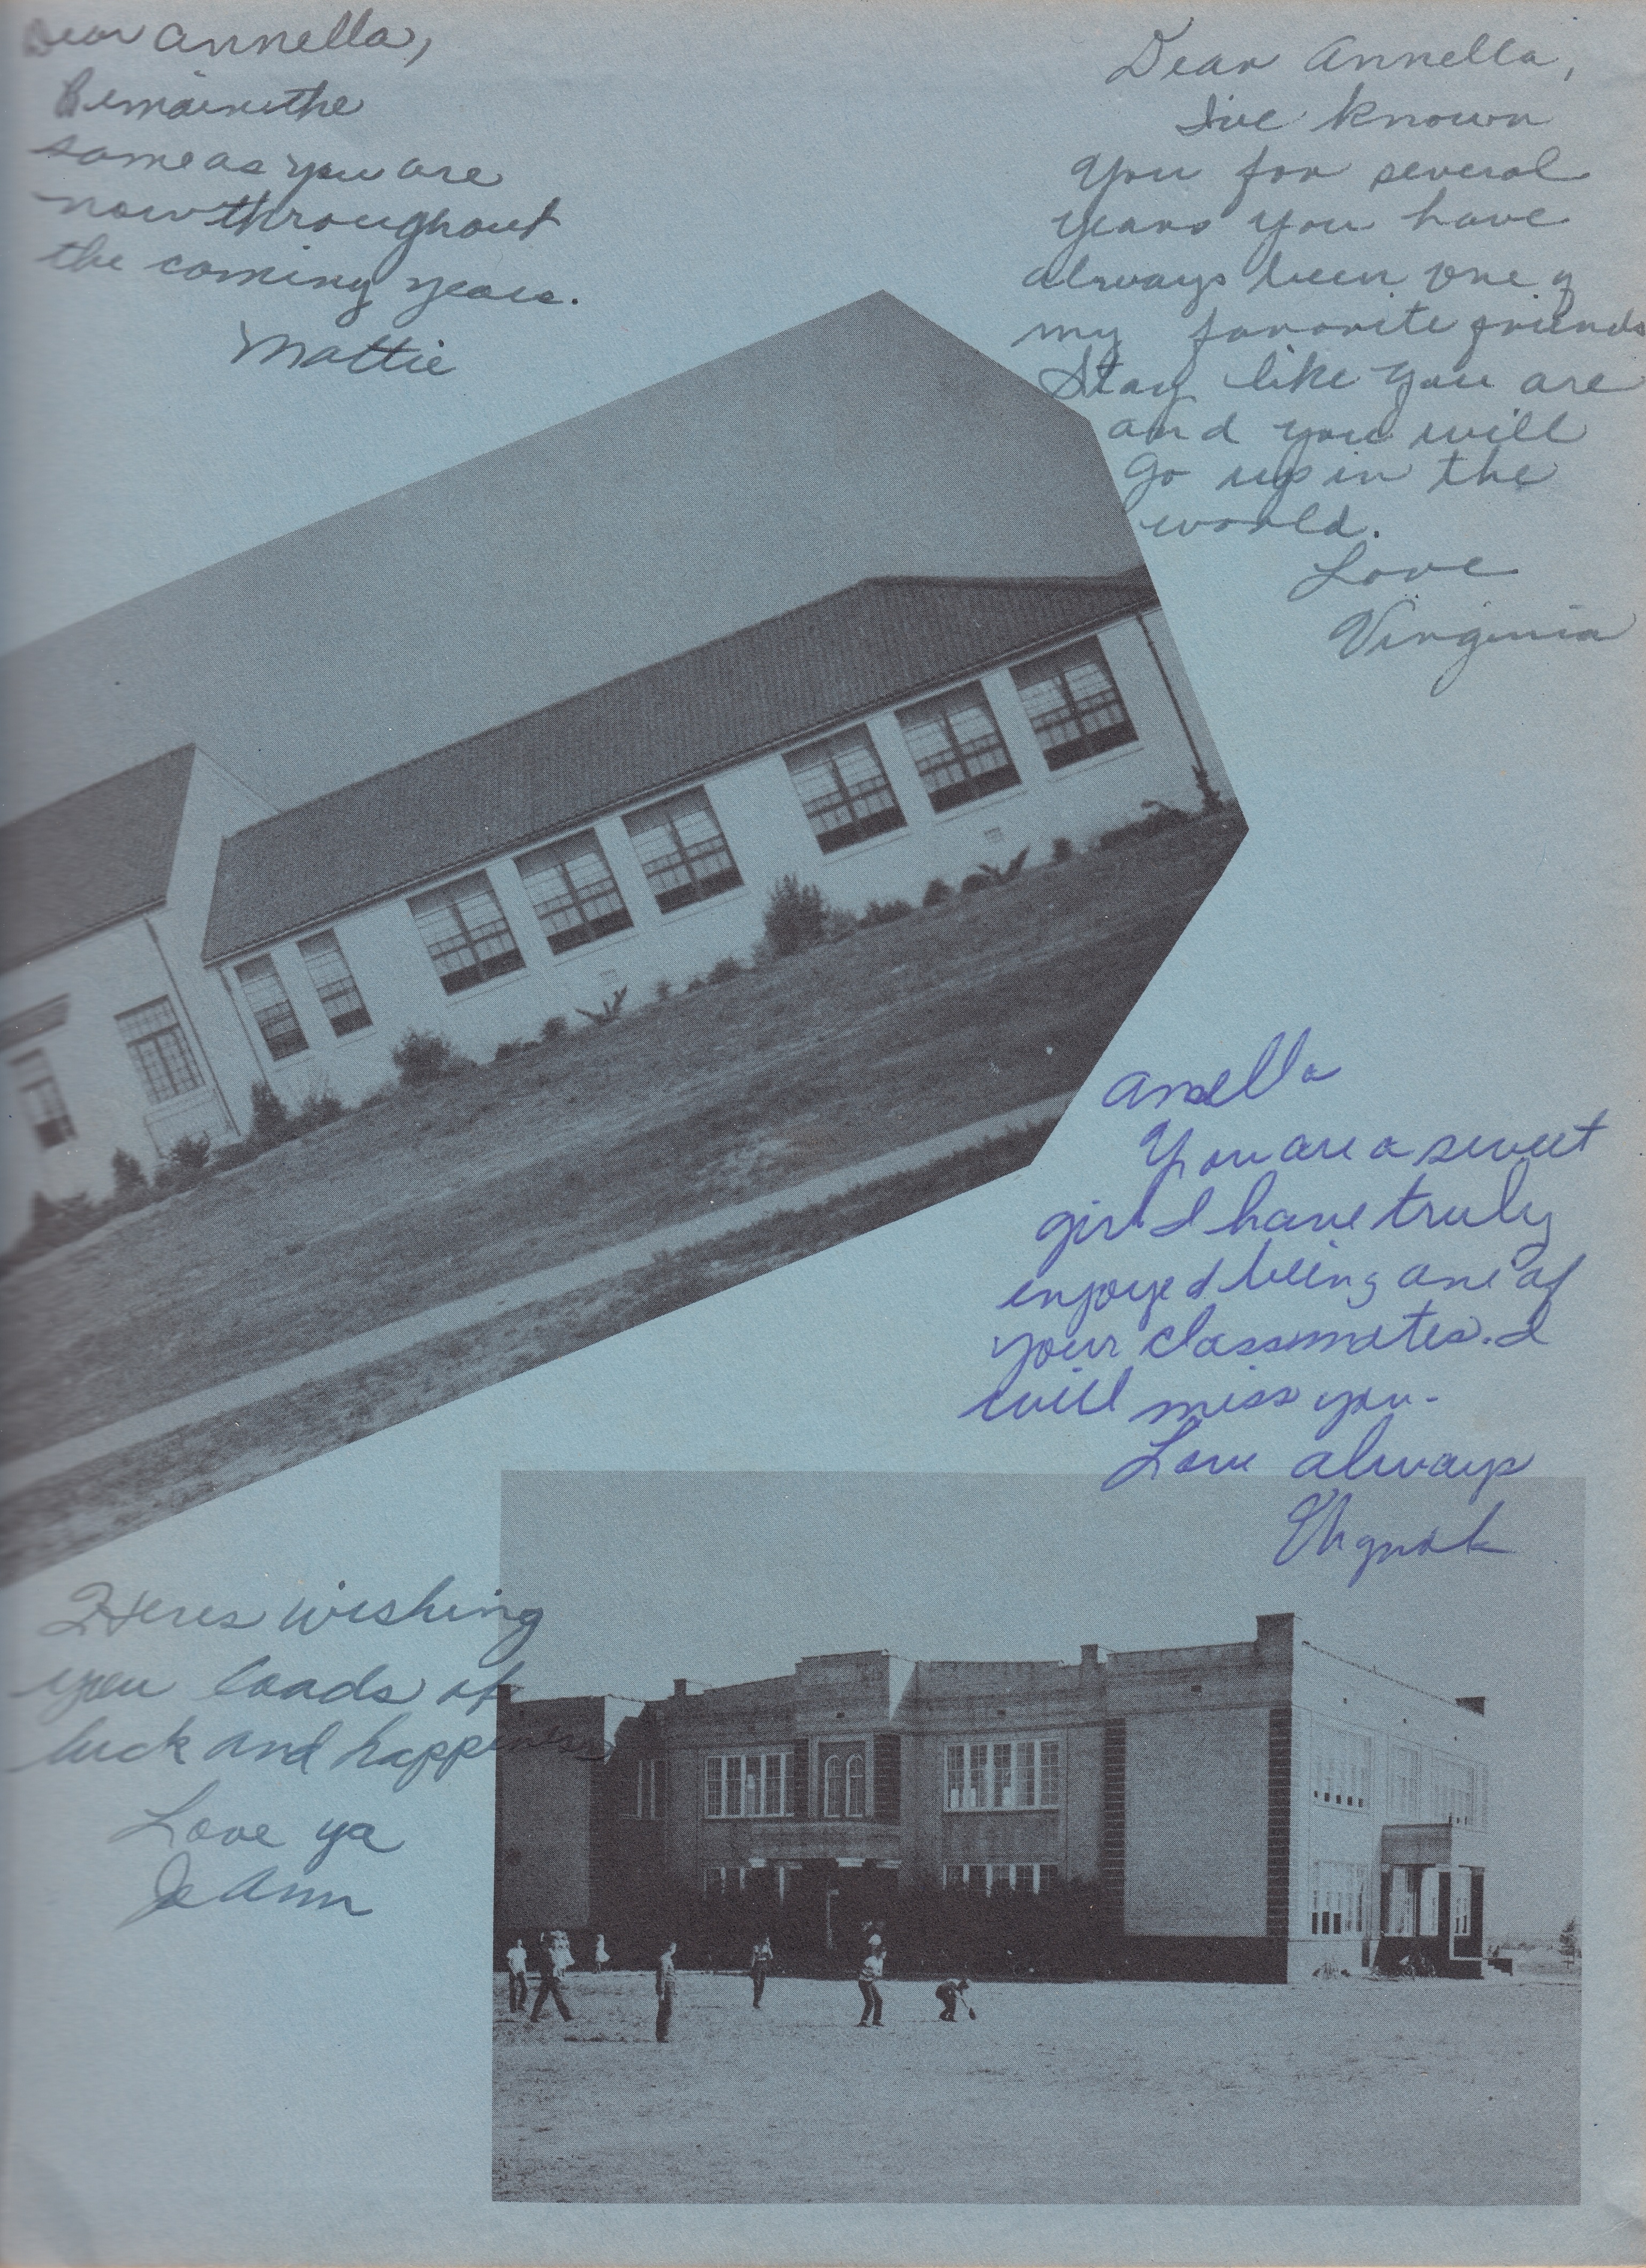 Dear Annella,
Remain the
same as you are
now throughout
the coming years.
Mattie
Dear Annella,
I've known
you for several
years you have
always been one of
my favorite friends
Stay like you are
and you will
go up in the
world.
Love
Virginia
Anella
You are a sweet
girl I have truly
enjoyed being one of
your classmates. I
will miss you.
Love always
Heres wishing
you loads of
luck and happiness
Love ya
Jo Ann